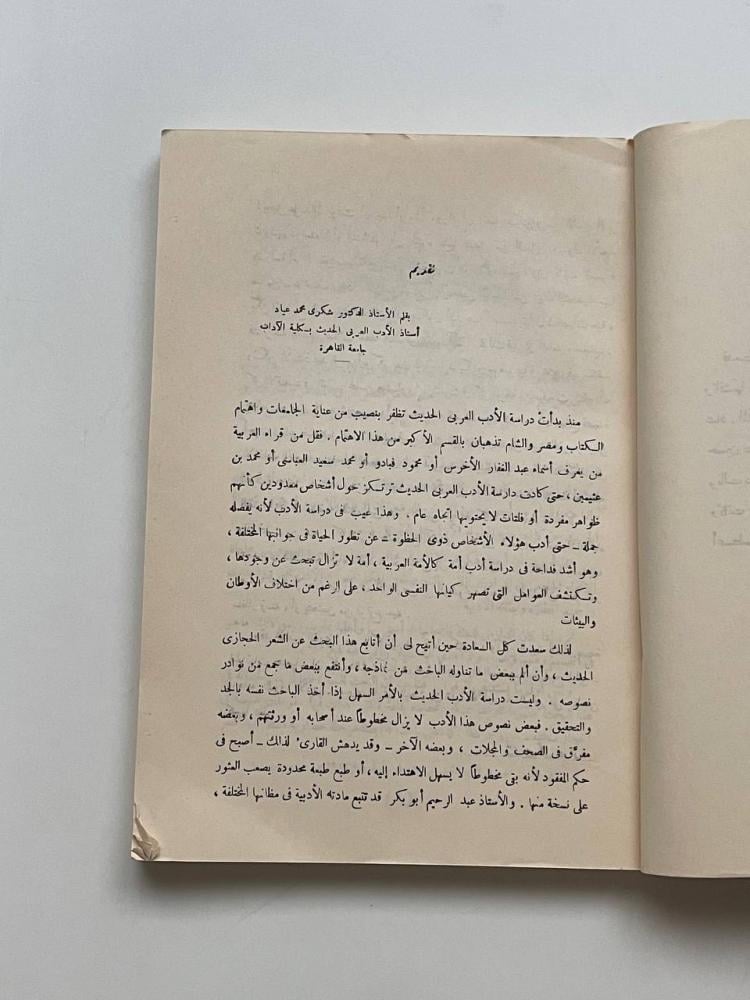 تقديم
بقلم الأستاذ الدكتور شكرى محمد عياد
أستاذ الأدب العربى الحديث بكلية الآداب
جامعة القاهرة
منذ بدأت دراسة الأدب العربى الحديث تظفر بنصيب من عناية الجامعات واهتمام
الكتاب ومصر والشام تذهبان بالقسم الأكبر من هذا الاهتمام . فقل من قراء العربية
من يعرف أسماء عبد الغفار الأخرس أو محمود قبادو أو محمد سعيد العباسى أو محمد بن
عثيمين ، حتى كادت دارسة الأدب العربى الحديث ترتكز حول أشخاص معدودين كأنهم
ظواهر مفردة أو فلتات لا يحتويها اتجاه عام . وهذا عيب فى دراسة الأدب لأنه يفصله
جملة – حتى أدب هؤلاء الأشخاص ذوى الحظوة – عن تطور الحياة فى جوانبها المختلفة ،
وهو أشد فداحة فى دراسة أدب أمة كالأمة العربية ، أمة لا تزال تبحث عن وجودها ،
وتستكشف العوامل التى تصهر كيانها النفسى الواحد ، على الرغم من اختلاف الأوطان
والبيئات
لذلك سعدت كل السعادة حين أتيح لى أن أتابع هذا البحث عن الشعر الحجازى
الحديث ، وأن ألم ببعض ما تناوله الباحث من نماذجه ، وأنتفع ببعض ما جمع من نوادر
نصوصه . وليست دراسة الأدب الحديث بالأمر السهل إذا أخذ الباحث نفسه بالجد
والتحقيق . فبعض نصوص هذا الأدب لا يزال مخطوطاً عند أصحابه أو ورثتهم ، وبعضه
مفرّق فى الصحف والمجلات ، وبعضه الآخر – وقد يدهش القارئ لذلك – أصبح فى
حكم المفقود لأنه بقى مخطوطاً لا يسهل الاهتداء إليه ، أو طبع طبعة محدودة يصعب العثور
على نسخة منها . والأستاذ عبد الرحيم أبو بكر قد تتبع مادته الأدبية فى مظانها المختلفة ،